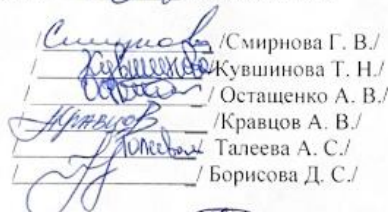 /Смирнова/ /Смирнова Г. В./
/Кувшинова/Кувшинова Т. Н./
/ / Остащенко А. В./
/Кравцов /Кравцов А. В./
/ Талеева А. С./
/ / Борисова Д. С./